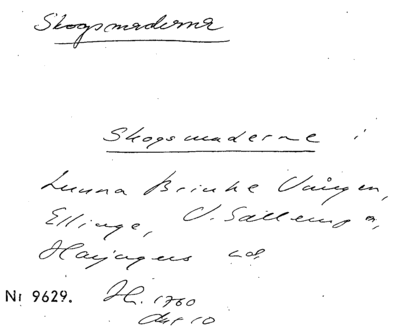 Skogsmaderna
Skogsmaderne i
Lunna Brinke Vången,
Ellinge, V. Sallerup m,
Harjagers hd.
Nr 9629. Hr. 1760
Akt 10